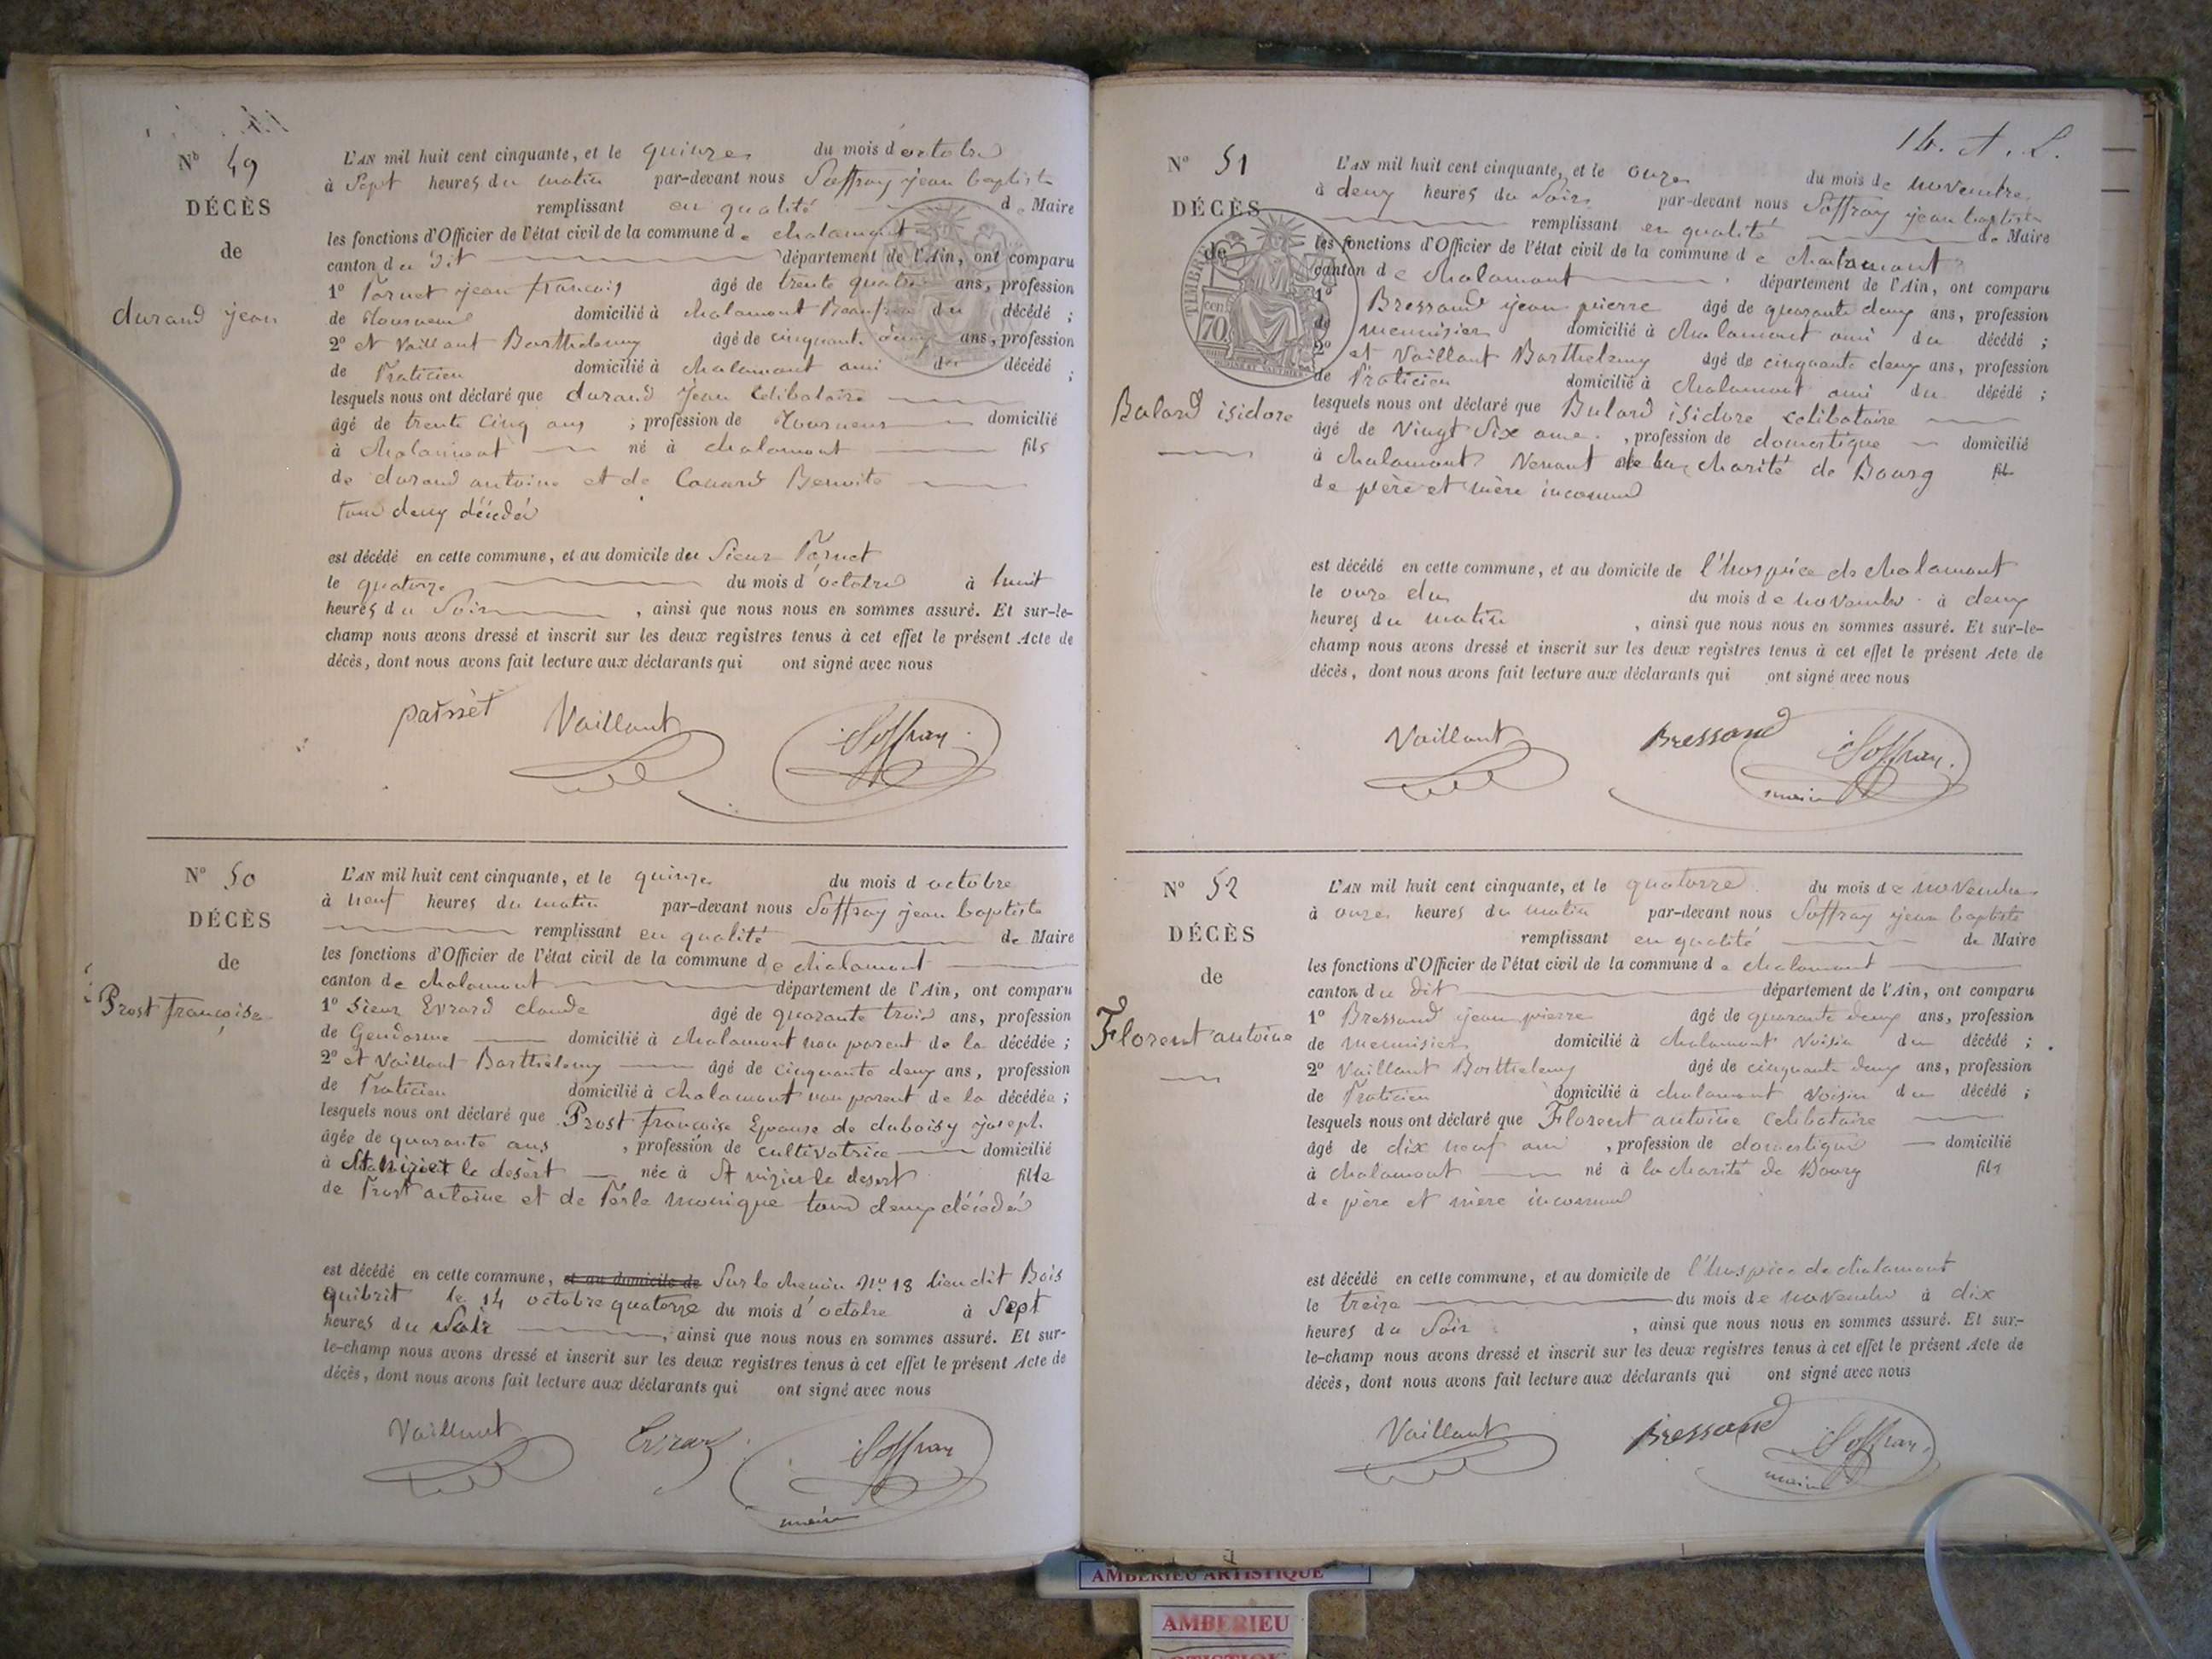 Nº 49
DÉCÈS
de
durand jean
L'AN mil huit cent cinquante, et le quinze du mois d'octobre
à Sept heures du matin par-devant nous Soffray jean baptiste
remplissant en qualité de Maire
les fonctions d'Officier de l'état civil de la commune de chalamont
canton du dit département de l'Ain, ont comparu
1º jean francois âgé de trente quatre ans, profession
de Tourneur domicilié à chalamont Beaufrere du décédé ;
2º et Vaillant Barthelemy âgé de cinquante deux ans, profession
de Praticien domicilié à chalamont ami du décédé ;
lesquels nous ont déclaré que durand Jean Celibataire
âgé de trente Cinq ans ; profession de Tourneur domicilié
à chalamont né à chalamont fils
de durand antoine et de Benoite
tous deux décédés
est décédé en cette commune, et au domicile du Sieur
le quatorze du mois d'octobre à huit
heures du Soir , ainsi que nous nous en sommes assuré. Et sur-le-
champ nous avons dressé et inscrit sur les deux registres tenus à cet effet le présent Acte de
décès, dont nous avons fait lecture aux déclarants qui ont signé avec nous
Vaillant Soffray
Nº 50
DÉCÈS
de
Prost françoise
L'AN mil huit cent cinquante, et le quinze du mois d octobre
à neuf heures du matin par-devant nous Soffray jean baptiste
remplissant en qualité de Maire
les fonctions d'Officier de l'état civil de la commune de chalamont
canton de chalamont département de l'Ain, ont comparu
1º Sieur Evrard claude âgé de quarante trois ans, profession
de Gendarme domicilié à chalamont non parent de la décédée ;
2º et Vaillant Barthelemy âgé de cinquante deux ans, profession
de Praticien domicilié à chalamont non parent de la décédée ;
lesquels nous ont déclaré que Prost francoise Epouse de duboisy joseph
âgée de quarante ans , profession de cultivatrice domicilié
à St Nizier le desert née à St nizier le desert fille
de Prost antoine et de monique tous deux décédés
est décédé en cette commune, et au domicile de Sur le chemin Nº 18 lieu dit Bois
quibrit le 14 octobre quatorze du mois d'octobre à Sept
heures du Soir , ainsi que nous nous en sommes assuré. Et sur-
le-champ nous avons dressé et inscrit sur les deux registres tenus à cet effet le présent Acte de
décès, dont nous avons fait lecture aux déclarants qui ont signé avec nous
Vaillant Evrard Soffray
maire
Nº 51
DÉCÈS
de
Bulard isidore
TIMBRE
70
L'AN mil huit cent cinquante, et le onze du mois de novembre
à deux heures du Soir par-devant nous Soffray jean baptiste
remplissant en qualité de Maire
les fonctions d'Officier de l'état civil de la commune de chalamont
canton de chalamont département de l'Ain, ont comparu
1º Bressand jean pierre âgé de quarante deux ans, profession
de menuisier domicilié à chalamont ami du décédé ;
2º et Vaillant Barthelemy âgé de cinquante deux ans, profession
de Praticien domicilié à chalamont ami du décédé ;
lesquels nous ont déclaré que Bulard isidore celibataire
âgé de Vingt Six ans , profession de domestique domicilié
à chalamont Venant de la charité de Bourg fils
de père et mère inconnus
est décédé en cette commune, et au domicile de l'hospice de chalamont
le onze du du mois de novembre à deux
heures du matin , ainsi que nous nous en sommes assuré. Et sur-le-
champ nous avons dressé et inscrit sur les deux registres tenus à cet effet le présent Acte de
décès, dont nous avons fait lecture aux déclarants qui ont signé avec nous
Vaillant Bressand Soffray
maire
Nº 52
DÉCÈS
de
Florent antoine
L'AN mil huit cent cinquante, et le quatorze du mois de novembre
à onze heures du matin par-devant nous Soffray jean baptiste
remplissant en qualité de Maire
les fonctions d'Officier de l'état civil de la commune de chalamont
canton du dit département de l'Ain, ont comparu
1º Bressand jean pierre âgé de quarante deux ans, profession
de menuisier domicilié à chalamont Voisin du décédé ;
2º Vaillant Barthelemy âgé de cinquante deux ans, profession
de Praticien domicilié à chalamont voisin du décédé ;
lesquels nous ont déclaré que Florent antoine celibataire
âgé de dix neuf ans , profession de domestique domicilié
à chalamont né à la charité de Bourg fils
de père et mère inconnus
est décédé en cette commune, et au domicile de l'hospice de chalamont
le treize du mois de novembre à dix
heures du Soir , ainsi que nous nous en sommes assuré. Et sur-
le-champ nous avons dressé et inscrit sur les deux registres tenus à cet effet le présent Acte de
décès, dont nous avons fait lecture aux déclarants qui ont signé avec nous
Vaillant Bressand Soffray
maire
AMBERIEU ARTISTIQUE
AMBERIEU